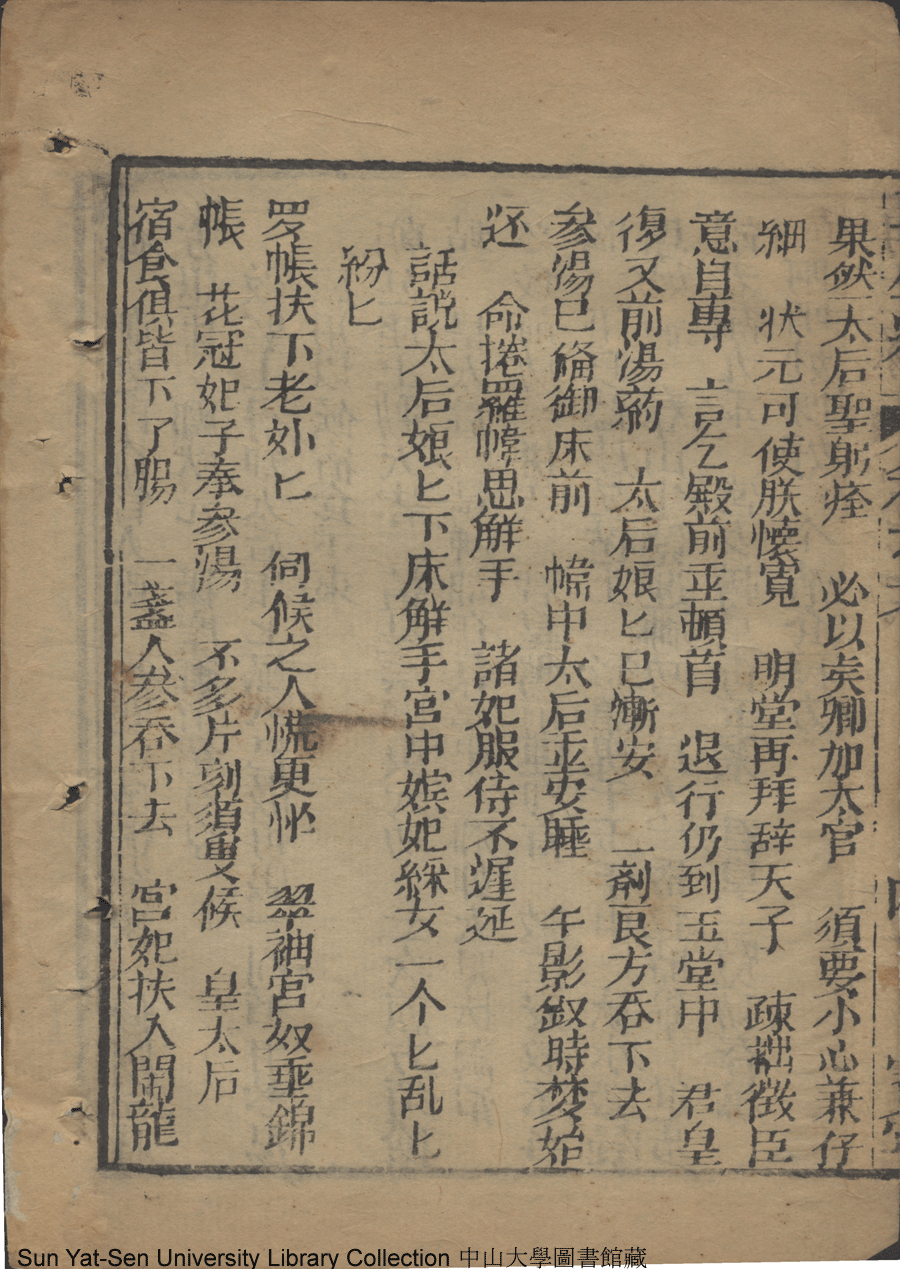 果然太后聖躬痊　必以矣卿加太官　須要小心兼仔
細　状元可使朕懷寬　明堂再拜辞天子　疎拙微臣
意自專　言乞殿前並頓首　退行仍到玉堂中　君皇
復又前湯葯　太后娘匕已漸安　一剤良方吞下去
参湯已偹御床前　幃中太后並安睡　午影叙時夢始
还　命捲羅幃思解手　諸妃服侍不遲延
話說太后娘匕下床解手宮中嫔妃綵女一个匕乱匕
紛匕
罗帳扶下老外匕　伺候之人慌更忙　翠袖宮奴垂錦
帳　花冠妃子奉参湯　不多片刻須臾候　皇太后
宿食俱皆下了腸　一盞人参吞下去　宮妃扶入鬧龍
Sun Yat-Sen University Library Collection 中山大學圖書館藏